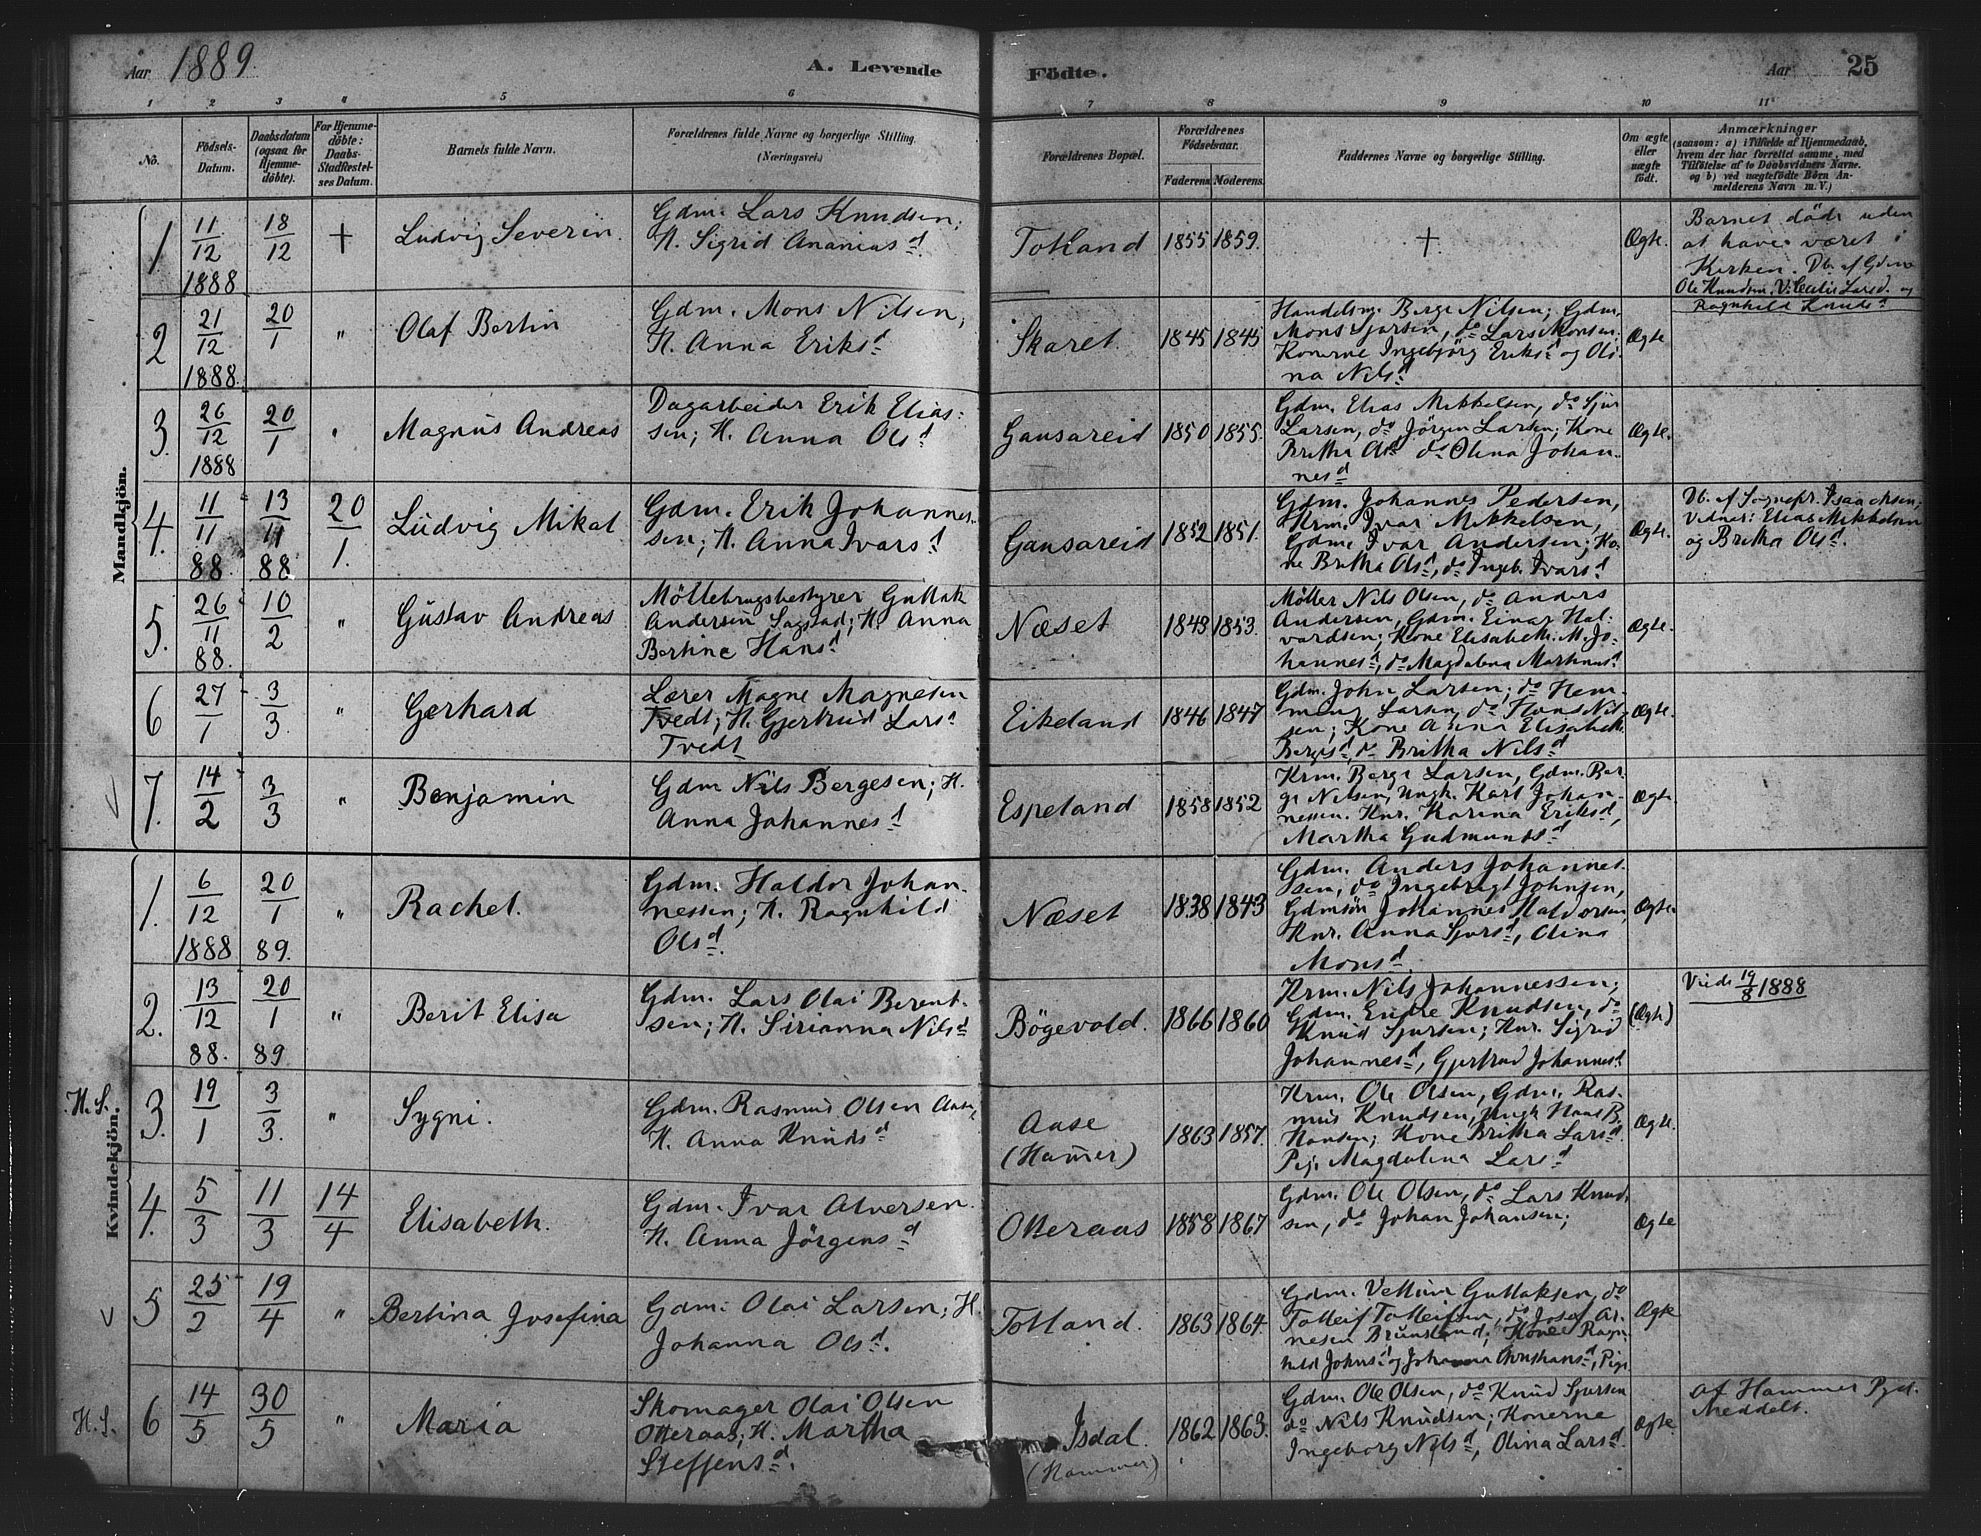 Aar 1889
A. Levende Födte.
Aar 25
1 2 3 4 5 6 7 8 9 10 11
No.
Födsels-Datum.
Daabsdatum (ogsaa for Hjemme-döbte).
For Hjemme-döbte: Daabs-Stadfæstel-ses Datum.
Barnets fulde Navn.
Forældrenes fulde Navne og borgerlige Stilling.
(Næringsvei.)
Forældrenes Bopæl.
Forældrenes Födselsaar.
Faderens Moderens.
Faddernes Navne og borgerlige Stilling.
Om ægte eller uægte födt.
Anmærkninger
(saasom: a) i Tilfælde af Hjemmedaab,
hvem der har forrettet samme, med
Tilföielse af to Daabsvidners Navne.
og b) ved uægtefödte Börn An-
melderens Navn m. V.)
Mandkjön.
1. 11/12 1888 18/12 + Ludvig Severin.
Gdm. Lars Knudsen;
H. Sigrid Ananiasd.
Totland 1855 1859. + Ægte.
Barnet döde uden
at have været i
Kirken. Db. af Gdm
Ole Knudsen. V: Larsd. og
Ragnhild Knudsd
2 21/12 1888. 20/1 " Olaf Bertin
Gdm. Mons Nilsen;
H. Anna Eriksd
Skaret. 1845 1845
Handelsm. Berge Nilsen; Gdm.
Mons Sjursen, do Lars Monsen.
Konerne Ingebjörg Eriksd og Oli-
na Nilsd
Ægte
3. 26/12 1888 20/1 " Magnus Andreas
Dagarbeider Erik Elias-
sen; H. Anna Olsd
Gansareid 1850 1855.
Gdm. Elias Mikkelsen, do Sjur
Larsen, do Jörgen Larsen; Kone
Britha Olsd do Olina Johan-
nesd
Ægte.
4. 11/11 88 13/11 88 20/1. Ludvig Mikal
Gdm. Erik Johannes-
sen; H. Anna Ivarsd
Gansareid 1852 1851.
Gdm. Johannes Pedersen,
Krm. Ivar Mikkelsen,
Gdm. Ivar Andersen; Ko-
ne Britha Olsd, do Ingeb. Ivarsd
Ægte.
Db. af Sognepr. Isaachsen;
Vidner: Elias Mikkelsen
og Britha Olsd.
5. 26/11 88. 10/2 " Gustav Andreas
Möllebrugsbestyrer Guttak
Andersen Sagstad; H. Anna
Bertine Hansd
Næset 1849 1853.
Möller Nils Olsen, do Anders
Andersen, Gdm. Einar Hal-
vardsen; Kone Elisabeth M. Jo-
hannesd, do Magdalena Martinusd
Ægte.
6 27/1 3/3. " Gerhard
Lærer Magne Magnesen
Tvedt; H. Gjertrud Larsd
Tvedt
Eikeland 1846 1847
Gdm. John Larsen; do Hem-
ming Larsen, do Hans Nil-
sen; Kone Anna Elisabeth
Bergsd, do Britha Nilsd
Ægte.
7. 14/2 3/3 " Benjamin
Gdm Nils Bergesen; H.
Anna Johannesd
Espeland 1858 1852
Krm. Berge Larsen, Gdm. Ber-
ge Nilsen, Ungk. Karl Johan-
nessen. Knr. Karina Eriksd,
Martha Gudmundsd
Ægte
Kvindekjön.
1. 6/12 1888 20/1 89. " Rachel.
Gdm. Haldor Johan-
nessen; H. Ragnhild
Olsd.
Næset 1838 1843
Gdm. Anders Johannes-
sen, do Ingebrigt Johnsen,
Gdmsön Johannes Haldorsen
Knr. Anna Sjursd, Olina
Monsd
Ægte.
2. 13/12 88. 20/1 89 " Berit Elisa
Gdm. Lars Olai Berent-
sen; H. Sirianna Nilsd
Bögevold. 1866 1860
Krm. Nils Johannessen;
Gdm. Endre Knudsen, do
Knud Sjursen; Knr. Sigrid
Johannesd, Gjertrud Johannesd.
(Ægte)
Viede 19/8 1888
H. S. 3. 19/1 3/3. " Sygni.
Gdm. Rasmus Olsen Aase;
H. Anna Knudsd
Aase
(Hamer) 1863 1857.
Krm. Ole Olsen, Gdm. Ras-
mus Knudsen, Ungk Hans B.
Hansen; Kone Britha Larsd.
Pige Magdalena Larsd
Ægte.
4. 5/3 11/3 14/4 Elisabeth.
Gdm. Ivar Alversen.
H. Anna Jörgensd
Otteraas 1858 1867
Gdm. Ole Olsen, do Lars Knud-
sen, do Johan Johansen;
Ægte
5 25/2 19/4 " Bertina Josefina
Gdm. Olai Larsen; H.
Johanna Olsd.
Totland. 1863 1864.
Gdm. Guttaksen, do
Totleif Totleifsen, do Josef Ar-
nesen Brunstand; Kone Ragn-
hild Johnsd og Johanna Christiansd, Pige
Ægte
H. S. 6 14/5 30/5 " Maria
Skomager Olai Olsen
Otteraas; H. Martha
Steffensd.
Isdal.
(Hammer) 1862 1863.
Gdm. Ole Olsen, do Knud Sjursen
do Nils Knudsen; Konerne
Ingeborg Nilsd, Olina Larsd.
Ægte.
af Hammer Pgd.
Meddelt.